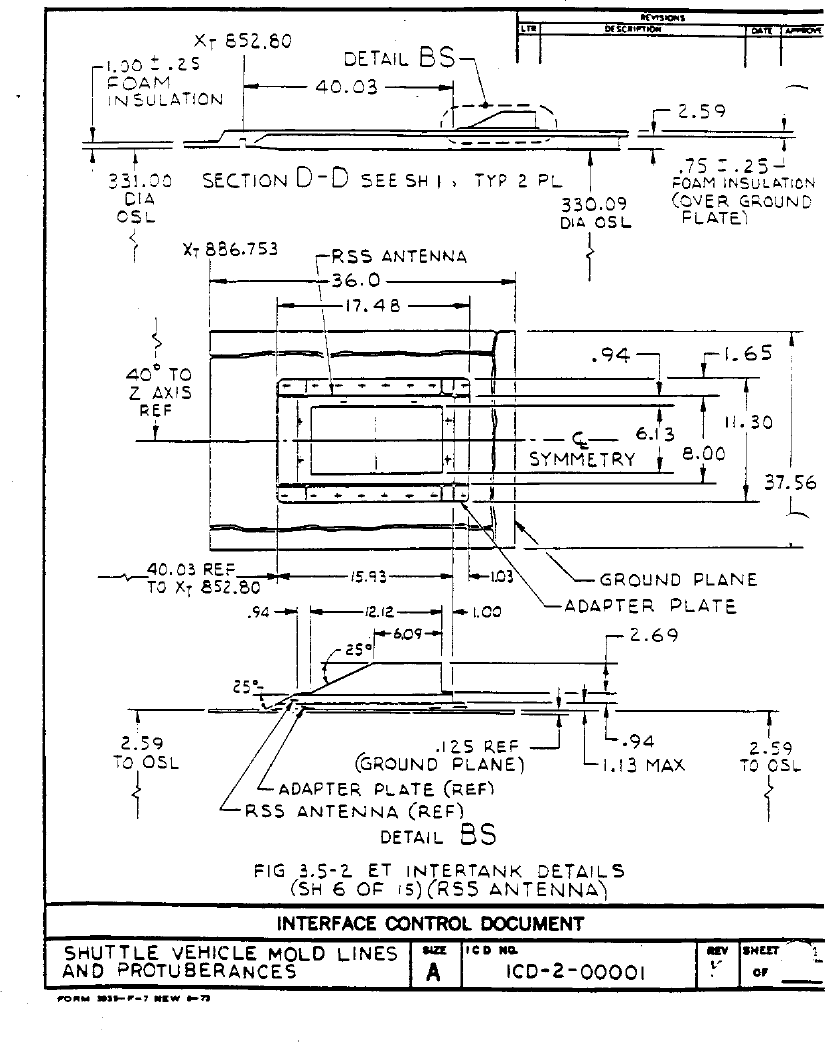 REVISIONS
LTR DESCRIPTION DATE APPROVE
XT 852.80
DETAIL BS
1.00 ± .25
FOAM
INSULATION
40.03
2.59
331.00
DIA
OSL
SECTION D-D SEE SH 1, TYP 2 PL
330.09
DIA OSL
.75 ± .25
FOAM INSULATION
(OVER GROUND
PLATE)
XT 886.753
RSS ANTENNA
36.0
17.48
.94
1.65
40° TO
Z AXIS
REF
11.30
6.13
8.00
℄
SYMMETRY
37.56
40.03 REF
TO XT 852.80
15.93
1.03
GROUND PLANE
ADAPTER PLATE
.94
12.12
1.00
6.09
2.69
25°
25°
2.59
TO OSL
.125 REF
(GROUND PLANE)
.94
1.13 MAX
2.59
TO OSL
ADAPTER PLATE (REF)
RSS ANTENNA (REF)
DETAIL BS
FIG 3.5-2 ET INTERTANK DETAILS
(SH 6 OF 15)(RSS ANTENNA)
INTERFACE CONTROL DOCUMENT
SHUTTLE VEHICLE MOLD LINES
AND PROTUBERANCES
SIZE
A
ICD NO.
ICD-2-00001
REV
SHEET
OF